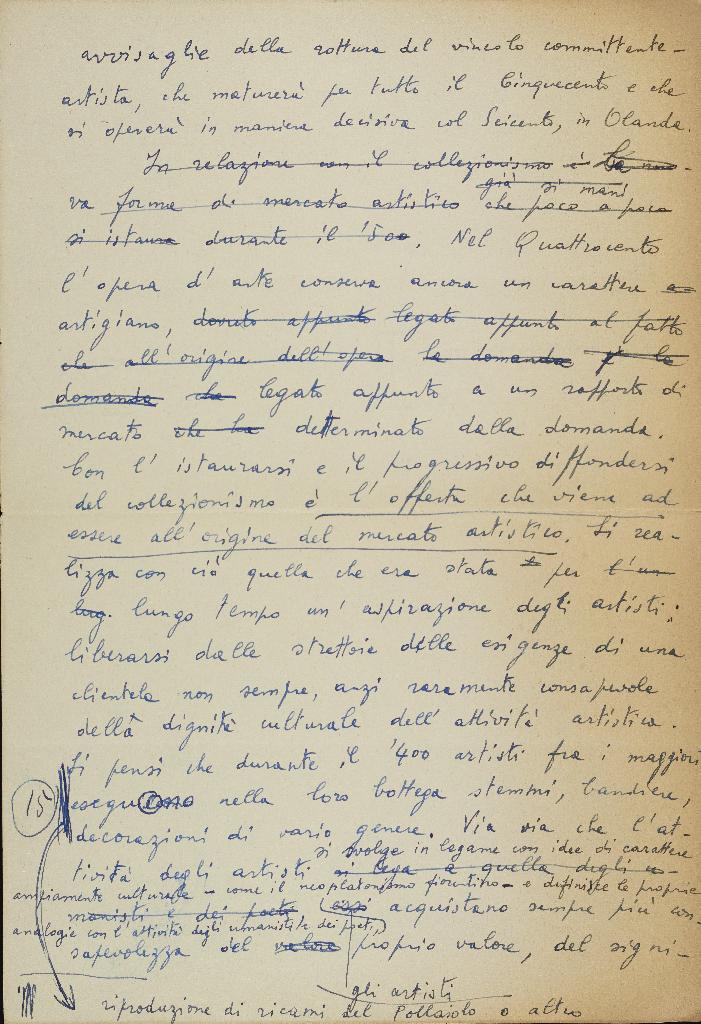 avvisaglie della rottura del vincolo committente-
artista, che maturerà per tutto il Cinquecento e che
si opererà in maniera decisiva col Seicento, in Olanda.
In relazione con il collezionismo è la nuo-
già si mani
va forma di mercato artistico che poco a poco
si istaura durante il '500. Nel Quattrocento
l'opera d'arte conserva ancora un carattere a
artigiano, dovuto appunto legato appunto al fatto
che all'origine dell'opera la domanda la
domanda che legato appunto a un rapporto di
mercato che ha determinato dalla domanda.
Con l'istaurarsi e il progressivo diffondersi
del collezionismo è l'offerta che viene ad
essere all'origine del mercato artistico. Si rea-
lizza con ciò quella che era stata per l'un
lug. lungo tempo un'aspirazione degli artisti:
liberarsi dalle strettoie delle esigenze di una
clientela non sempre, anzi raramente consapevole
della dignità culturale dell'attività artistica.
Si pensi che durante il '400 artisti fra i maggiori
15 nella loro bottega stemmi, bandiere,
decorazioni di vario genere. Via via che l'at-
si svolge in legame con idee di carattere
tività degli artisti si lega a quella degli u-
ampiamente culturale - come il neoplatonismo fiorentino - e definisce le proprie
manisti e dei poeti (essi acquistano sempre più con-
analogie con l'attività degli umanisti e dei poeti,
sapevolezza del valore proprio valore, del signi-
gli artisti
riproduzione di ricami del Pollaiolo o altro